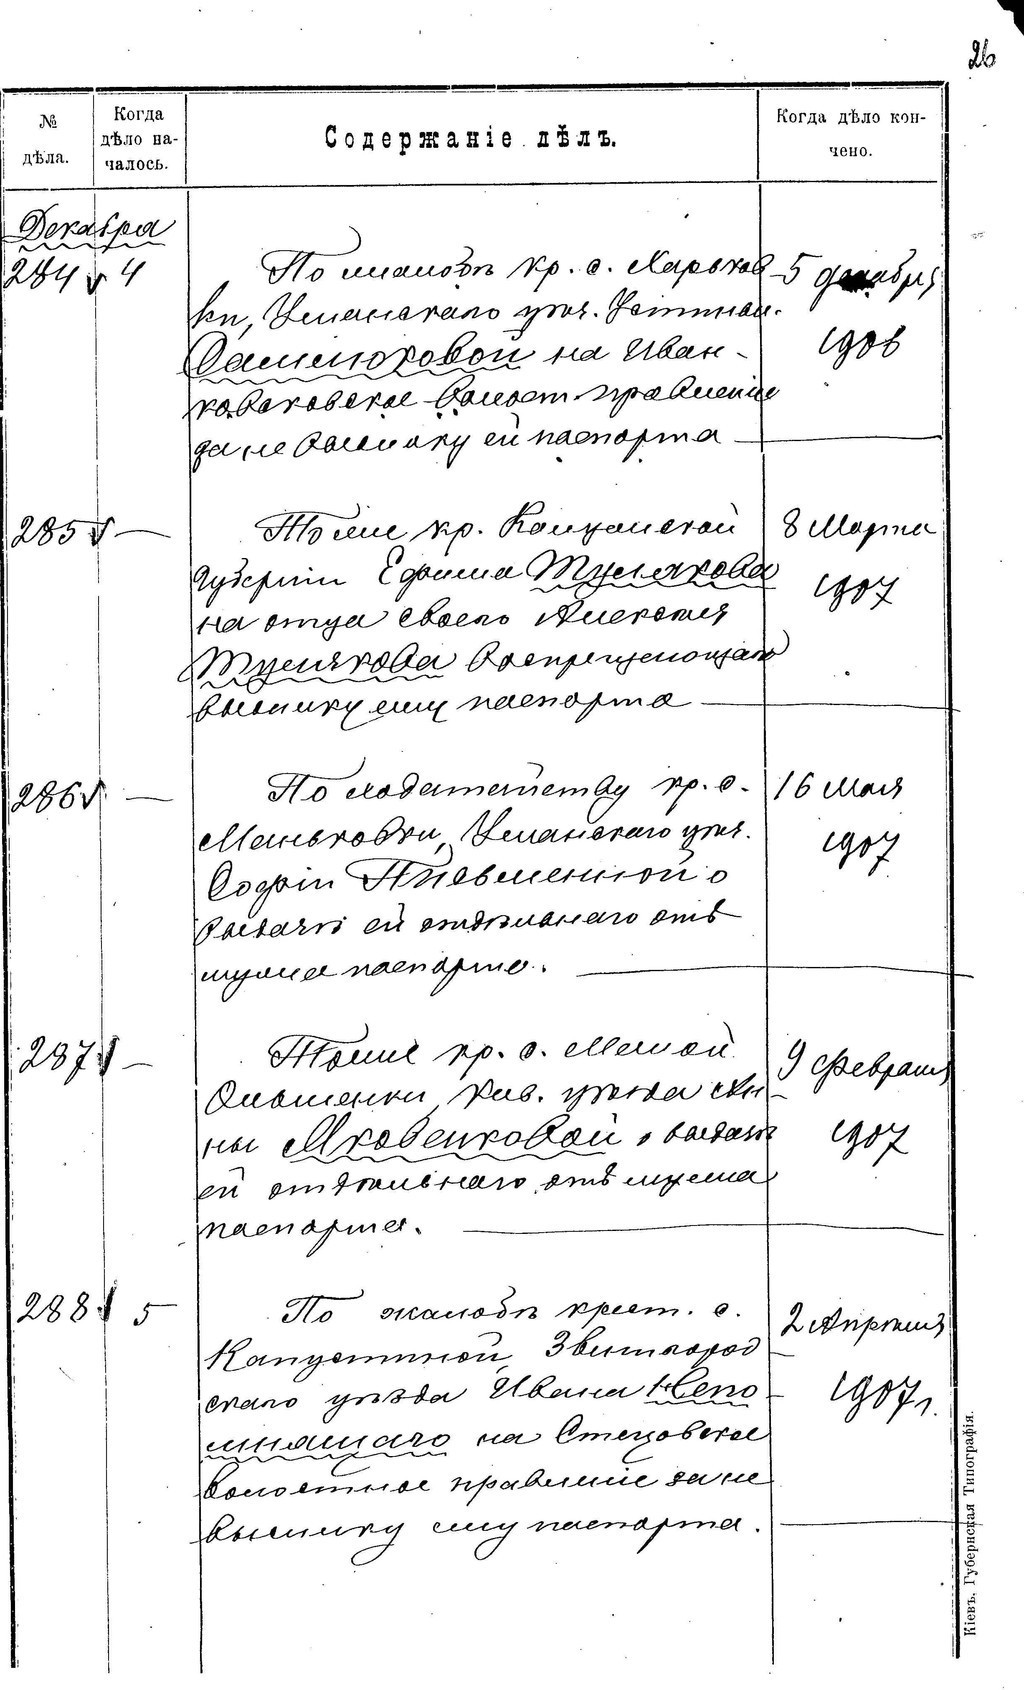 26
№ дѣла.
Когда дѣло началось.
Содержаніе дѣлъ.
Когда дѣло кончено.
Декабря
284 4 По жалобѣ кр. с. Харьков- 5 декабря
ки, Уманскаго уѣз. Устиньи 1906
Самсоновой на Иван-
волост. правленіе
за не высылку ей паспорта
285 — Тоже кр. 8 Марта
Губерніи Ефима Тумакова 1907
на отца своего Алексѣя
Тумакова воспрещающаго
высылку ему паспорта
286 — По ходатайству кр. с. 16 Мая
Маньковки, Уманскаго уѣз. 1907
Софіи Письменной о
выдачѣ ей отдѣльнаго отъ
мужа паспорта.
287 — Тоже кр. с. Малой 9 Февраля
Ольшанки, Кіев. уѣзда Ан- 1907
ны Яковенковой о выдачѣ
ей отдѣльнаго отъ мужа
паспорта.
288 5 По жалобѣ крест. с. 2 Апрѣля
Капустиной, Звенигород
скаго уѣзда Ивана Непо- 1907 г.
мнящаго на Стецовское
волостное правленіе за не
высылку ему паспорта.
Кіевъ. Губернская Типографія.